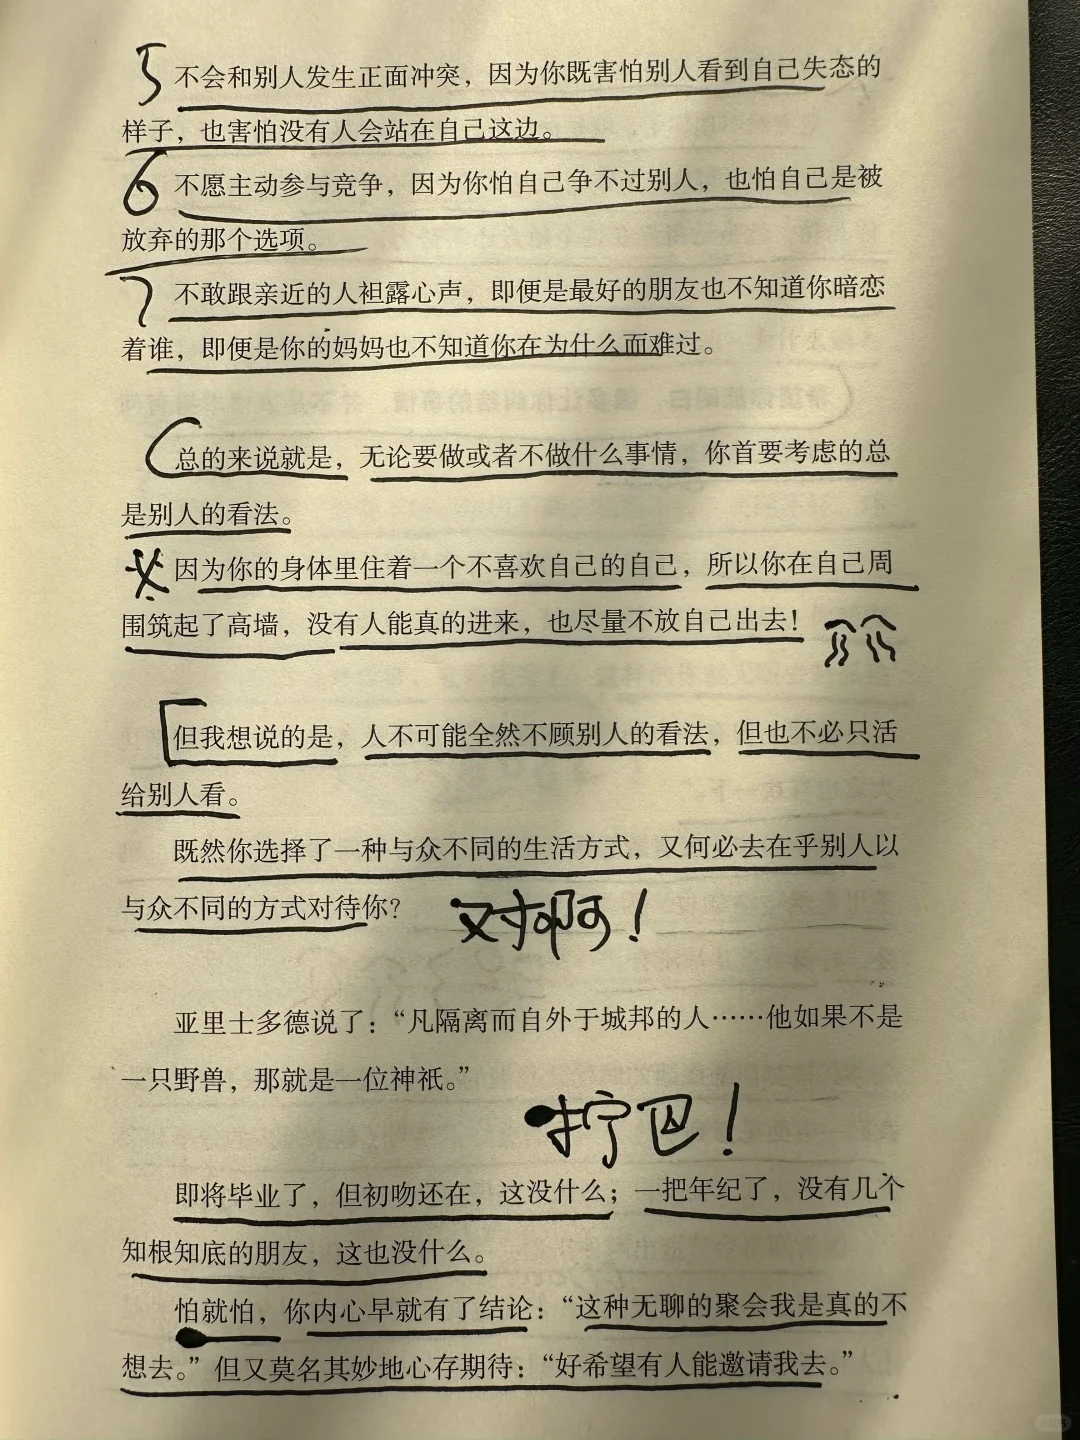 5 不会和别人发生正面冲突，因为你既害怕别人看到自己失态的
样子，也害怕没有人会站在自己这边。
6 不愿主动参与竞争，因为你怕自己争不过别人，也怕自己是被
放弃的那个选项。
7 不敢跟亲近的人袒露心声，即便是最好的朋友也不知道你暗恋
着谁，即便是你的妈妈也不知道你在为什么而难过。
总的来说就是，无论要做或者不做什么事情，你首要考虑的总
是别人的看法。
因为你的身体里住着一个不喜欢自己的自己，所以你在自己周
围筑起了高墙，没有人能真的进来，也尽量不放自己出去！
但我想说的是，人不可能全然不顾别人的看法，但也不必只活
给别人看。
既然你选择了一种与众不同的生活方式，又何必去在乎别人以
与众不同的方式对待你？
对啊！
亚里士多德说了：“凡隔离而自外于城邦的人……他如果不是
一只野兽，那就是一位神祇。”
拧巴！
即将毕业了，但初吻还在，这没什么；一把年纪了，没有几个
知根知底的朋友，这也没什么。
怕就怕，你内心早就有了结论：“这种无聊的聚会我是真的不
想去。”但又莫名其妙地心存期待：“好希望有人能邀请我去。”